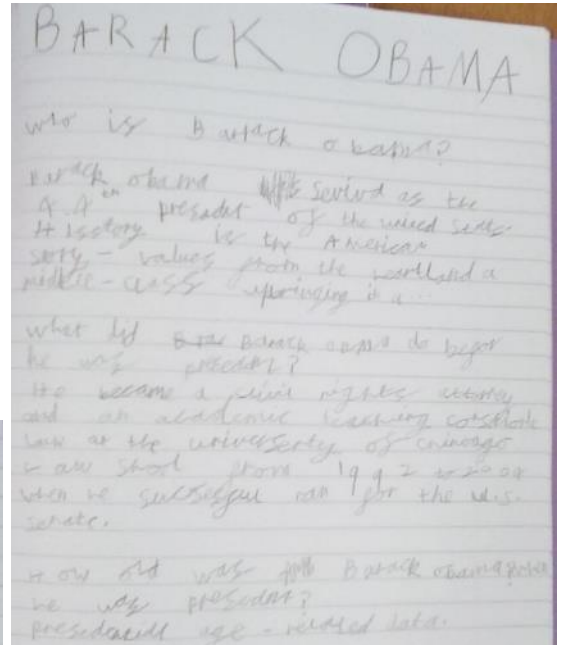 BARACK OBAMA
who is Barack obama?
Barack obama servied as the
44th presadat of the united seats
His story is the American
story - values from the heartland a
middle - class upringing in a
what did Barack oama do befor
he was presedant?
He became a civil rights attorney
and an academic teaching
law at the universerty of chicago
Law shool from 1992 to 2004
when he sucsesful ran for the u.s.
senate.
How old was Barack obama
he was presedant?
age - related data.